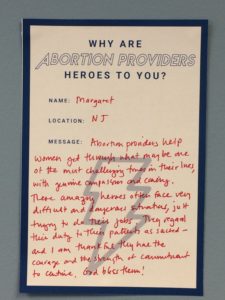 WHY ARE
ABORTION PROVIDERS
HEROES TO YOU?
NAME: Margaret
LOCATION: NJ
MESSAGE: Abortion providers help
women get through what may be one
of the most challenging times in their lives,
with genuine compassion and caring.
These amazing heroes often face very
difficult and dangerous situations, just
trying to do their jobs. They regard
their duty to their patients as sacred –
and I am thankful they have the
courage and the strength of commitment
to continue. God bless them!